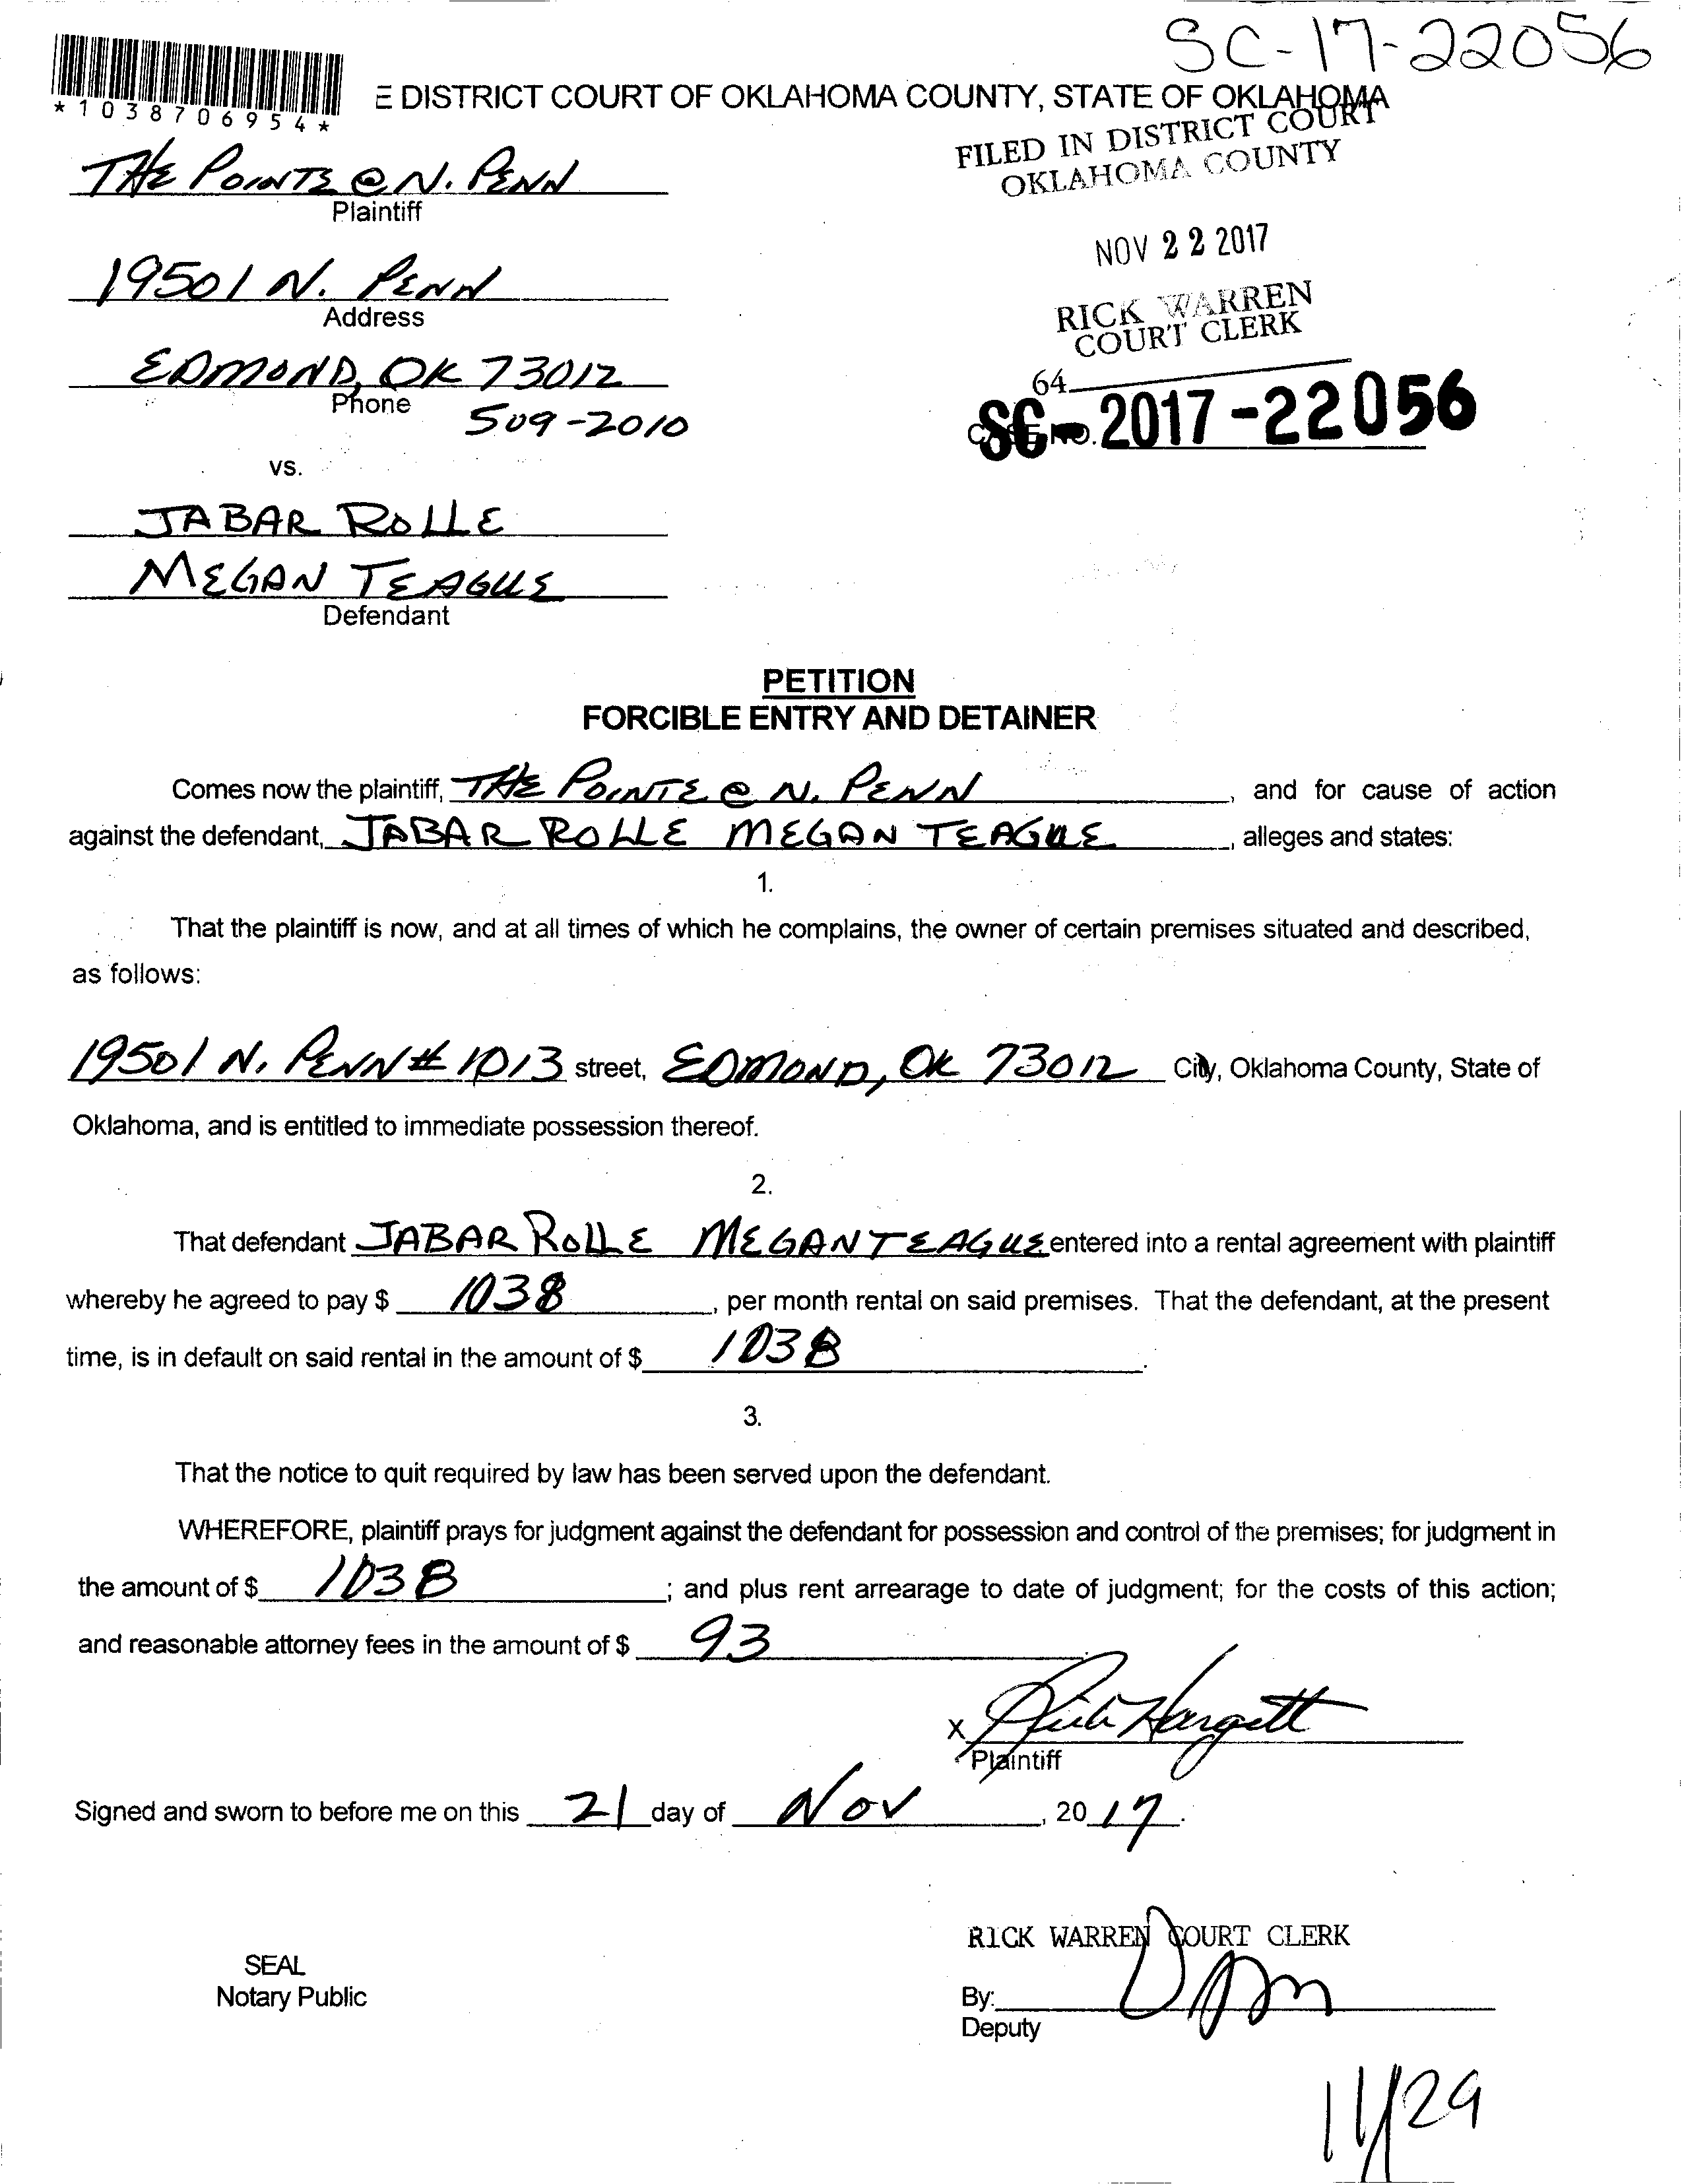 SC-17-22056
*1038706954*
E DISTRICT COURT OF OKLAHOMA COUNTY, STATE OF OKLAHOMA
FILED IN DISTRICT COURT
OKLAHOMA COUNTY
THE POINTE @ N. PENN
Plaintiff
NOV 22 2017
19501 N. PENN
Address
RICK WARREN
COURT CLERK
EDMOND, OK 73012
Phone
509-2010
64
SC-2017-22056
vs.
JABAR ROLLE
MEGAN TEAGUE
Defendant
PETITION
FORCIBLE ENTRY AND DETAINER
Comes now the plaintiff, THE POINTE @ N. PENN, and for cause of action
against the defendant, JABAR ROLLE MEGAN TEAGUE, alleges and states:
1.
That the plaintiff is now, and at all times of which he complains, the owner of certain premises situated and described,
as follows:
19501 N. PENN # 1013 street, EDMOND, OK 73012 City, Oklahoma County, State of
Oklahoma, and is entitled to immediate possession thereof.
2.
That defendant JABAR ROLLE MEGAN TEAGUE entered into a rental agreement with plaintiff
whereby he agreed to pay $ 1038, per month rental on said premises. That the defendant, at the present
time, is in default on said rental in the amount of $ 1038.
3.
That the notice to quit required by law has been served upon the defendant.
WHEREFORE, plaintiff prays for judgment against the defendant for possession and control of the premises; for judgment in
the amount of $ 1038; and plus rent arrearage to date of judgment; for the costs of this action;
and reasonable attorney fees in the amount of $ 93.
X Hargett
Plaintiff
Signed and sworn to before me on this 21 day of Nov, 2017.
RICK WARREN COURT CLERK
SEAL
Notary Public
By:
Deputy
11/29